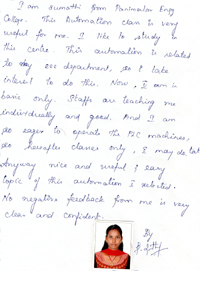 I am Sumathi from Panimalar Engg
College. This Automation class is very
useful for me. I like to study in
this centre. This automation is related
to our department, so I take
interest to do this. Now, I am in
basic only. Staffs are teaching me
individually and good. And I am
so eager to operate the machines,
hereafter classes only, I may do, but
Anyway nice and useful & easy
topic of this automation I selected.
No negative feedback from me is very
clear and confident.
By